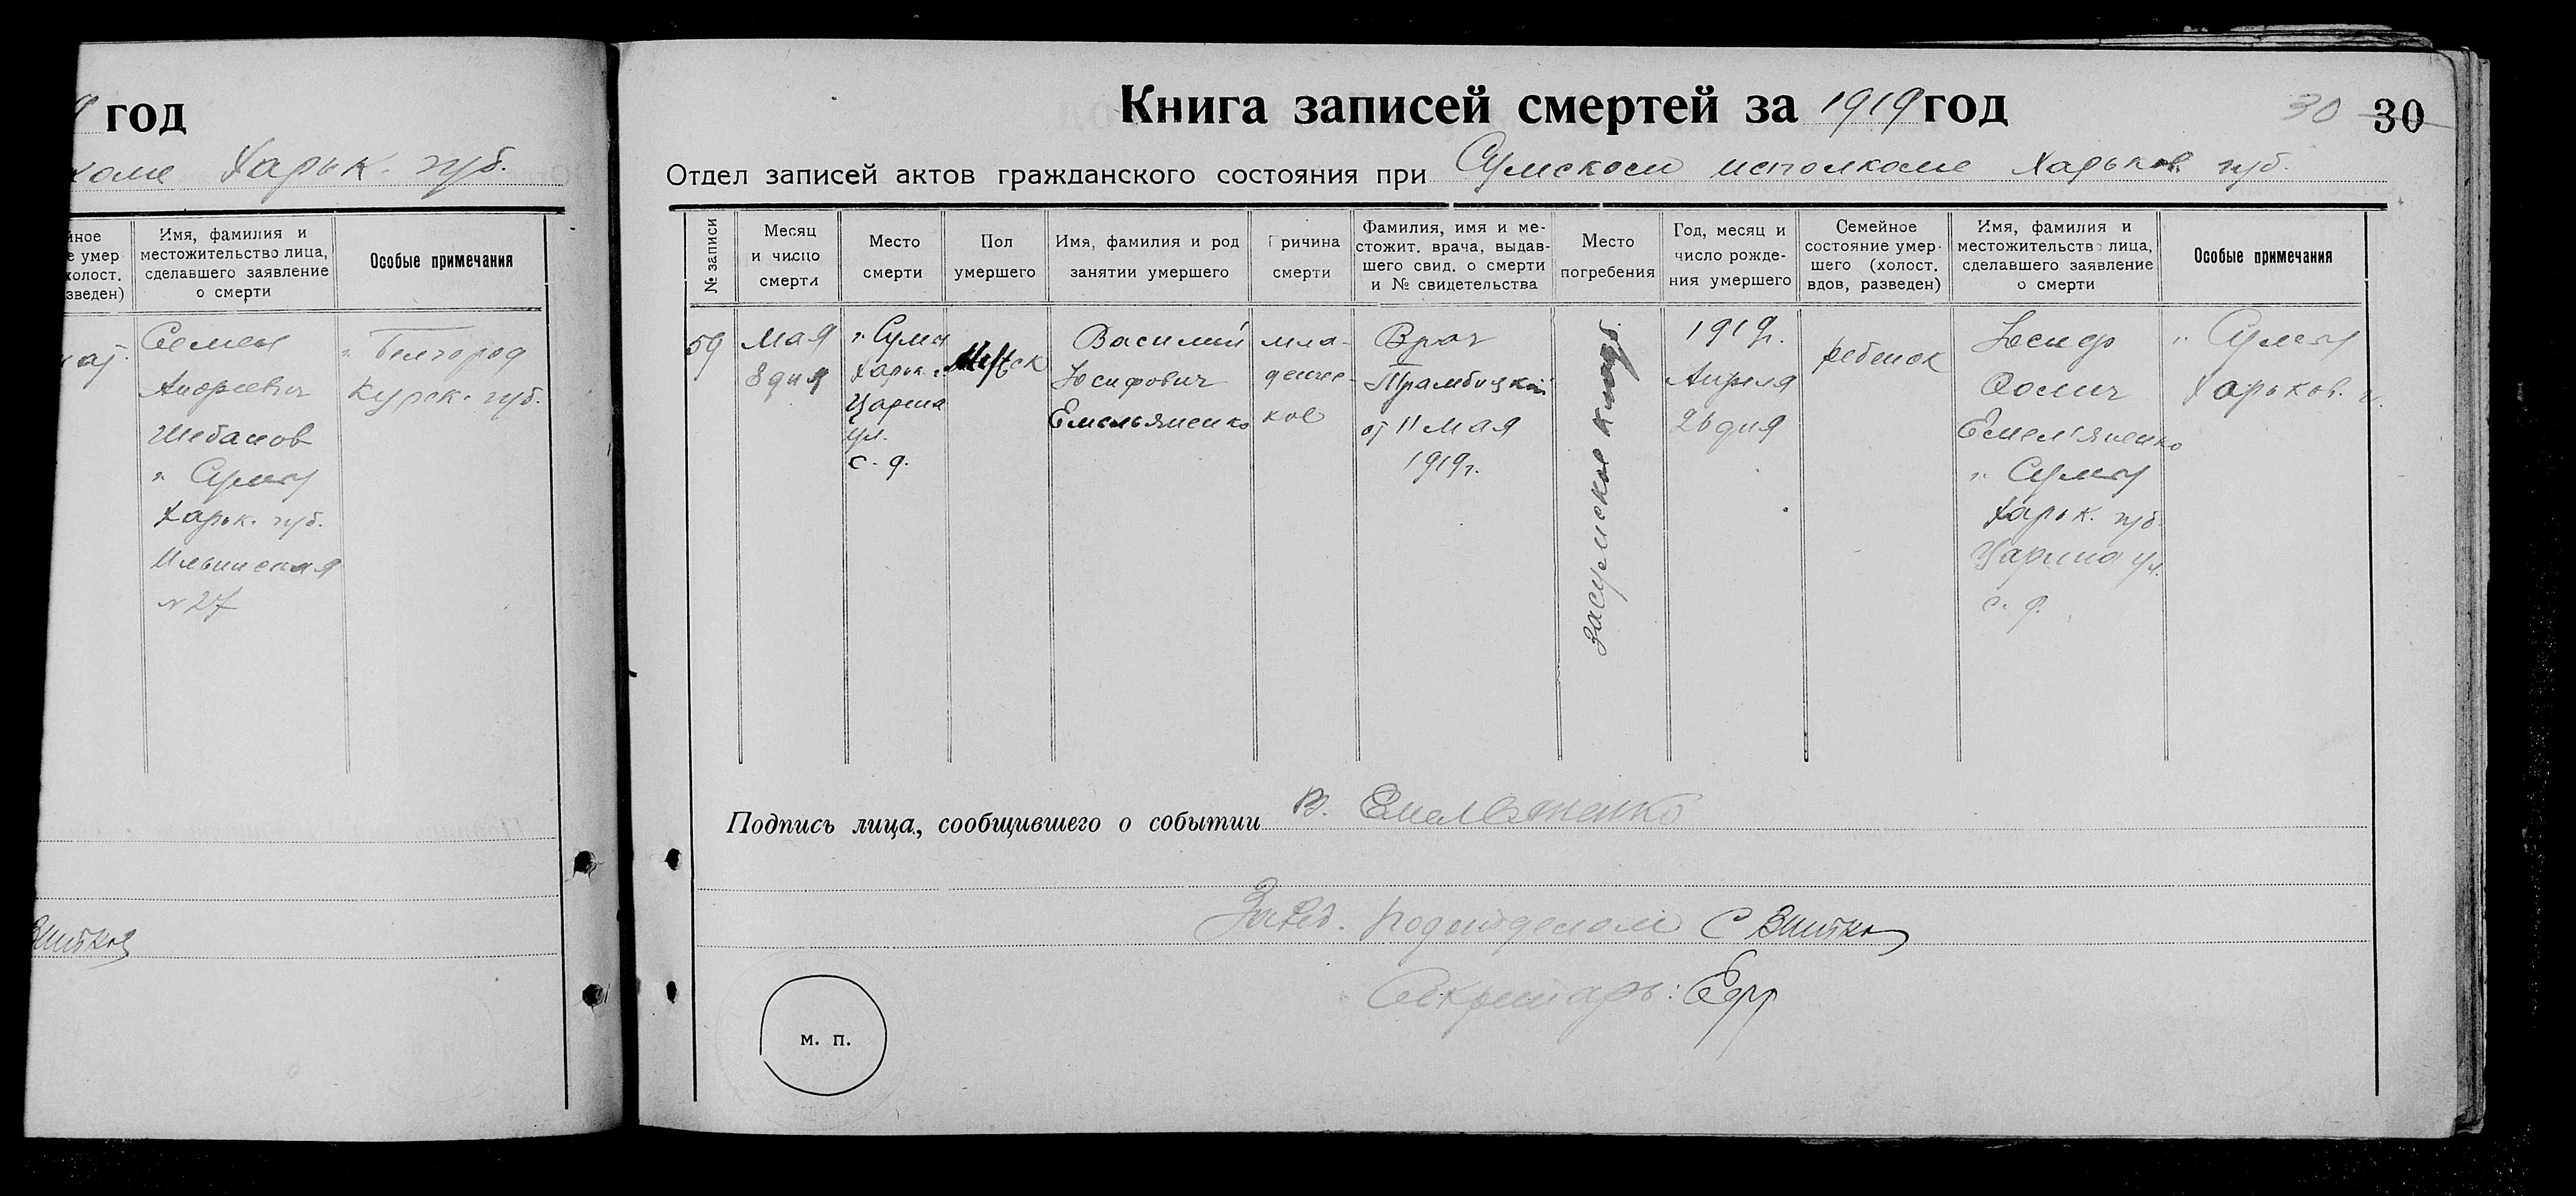 год
коме Харьк. губ.
йное
е умер
холост.
зведен)
Имя, фамилия и
местожительство лица,
сделавшего заявление
о смерти
Особые примечания
Семен
Андреевич
Шебанов
г. Сумы
Харьк. губ.
Ильинская
№ 27
г. Белгород
Курск. губ.
Книга записей смертей за 1919 год
30 30
Отдел записей актов гражданского состояния при Сумском исполкоме Харьков. губ.
№ записи
Месяц
и число
смерти
Место
смерти
Пол
умершего
Имя, фамилия и род
занятии умершего
Причина
смерти
Фамилия, имя и ме-
стожит. врача, выдав-
шего свид. о смерти
и № свидетельства
Место
погребения
Год, месяц и
число рожде-
ния умершего
Семейное
состояние умер-
шего (холост.
вдов, разведен)
Имя, фамилия и
местожительство лица,
сделавшего заявление
о смерти
Особые примечания
59
Мая
8 дня
г. Сумы
Харьк. г.
Царина
ул.
с. д.
Мужск
Василий
Юсифович
Емельяненко
мла-
денче-
кое
Врач
от 11 мая
1919 г.
Засумское кладб.
1919 г.
Апреля
26 дня
ребенок
Юсиф
Фомич
Емельяненко
г. Сумы
Харьк. губ.
Царина ул.
с. д.
г. Сумы
Харьков. г.
Подпись лица, сообщившего о событии Емельяненко
Завед. подотделом
Секретарь:
м. п.